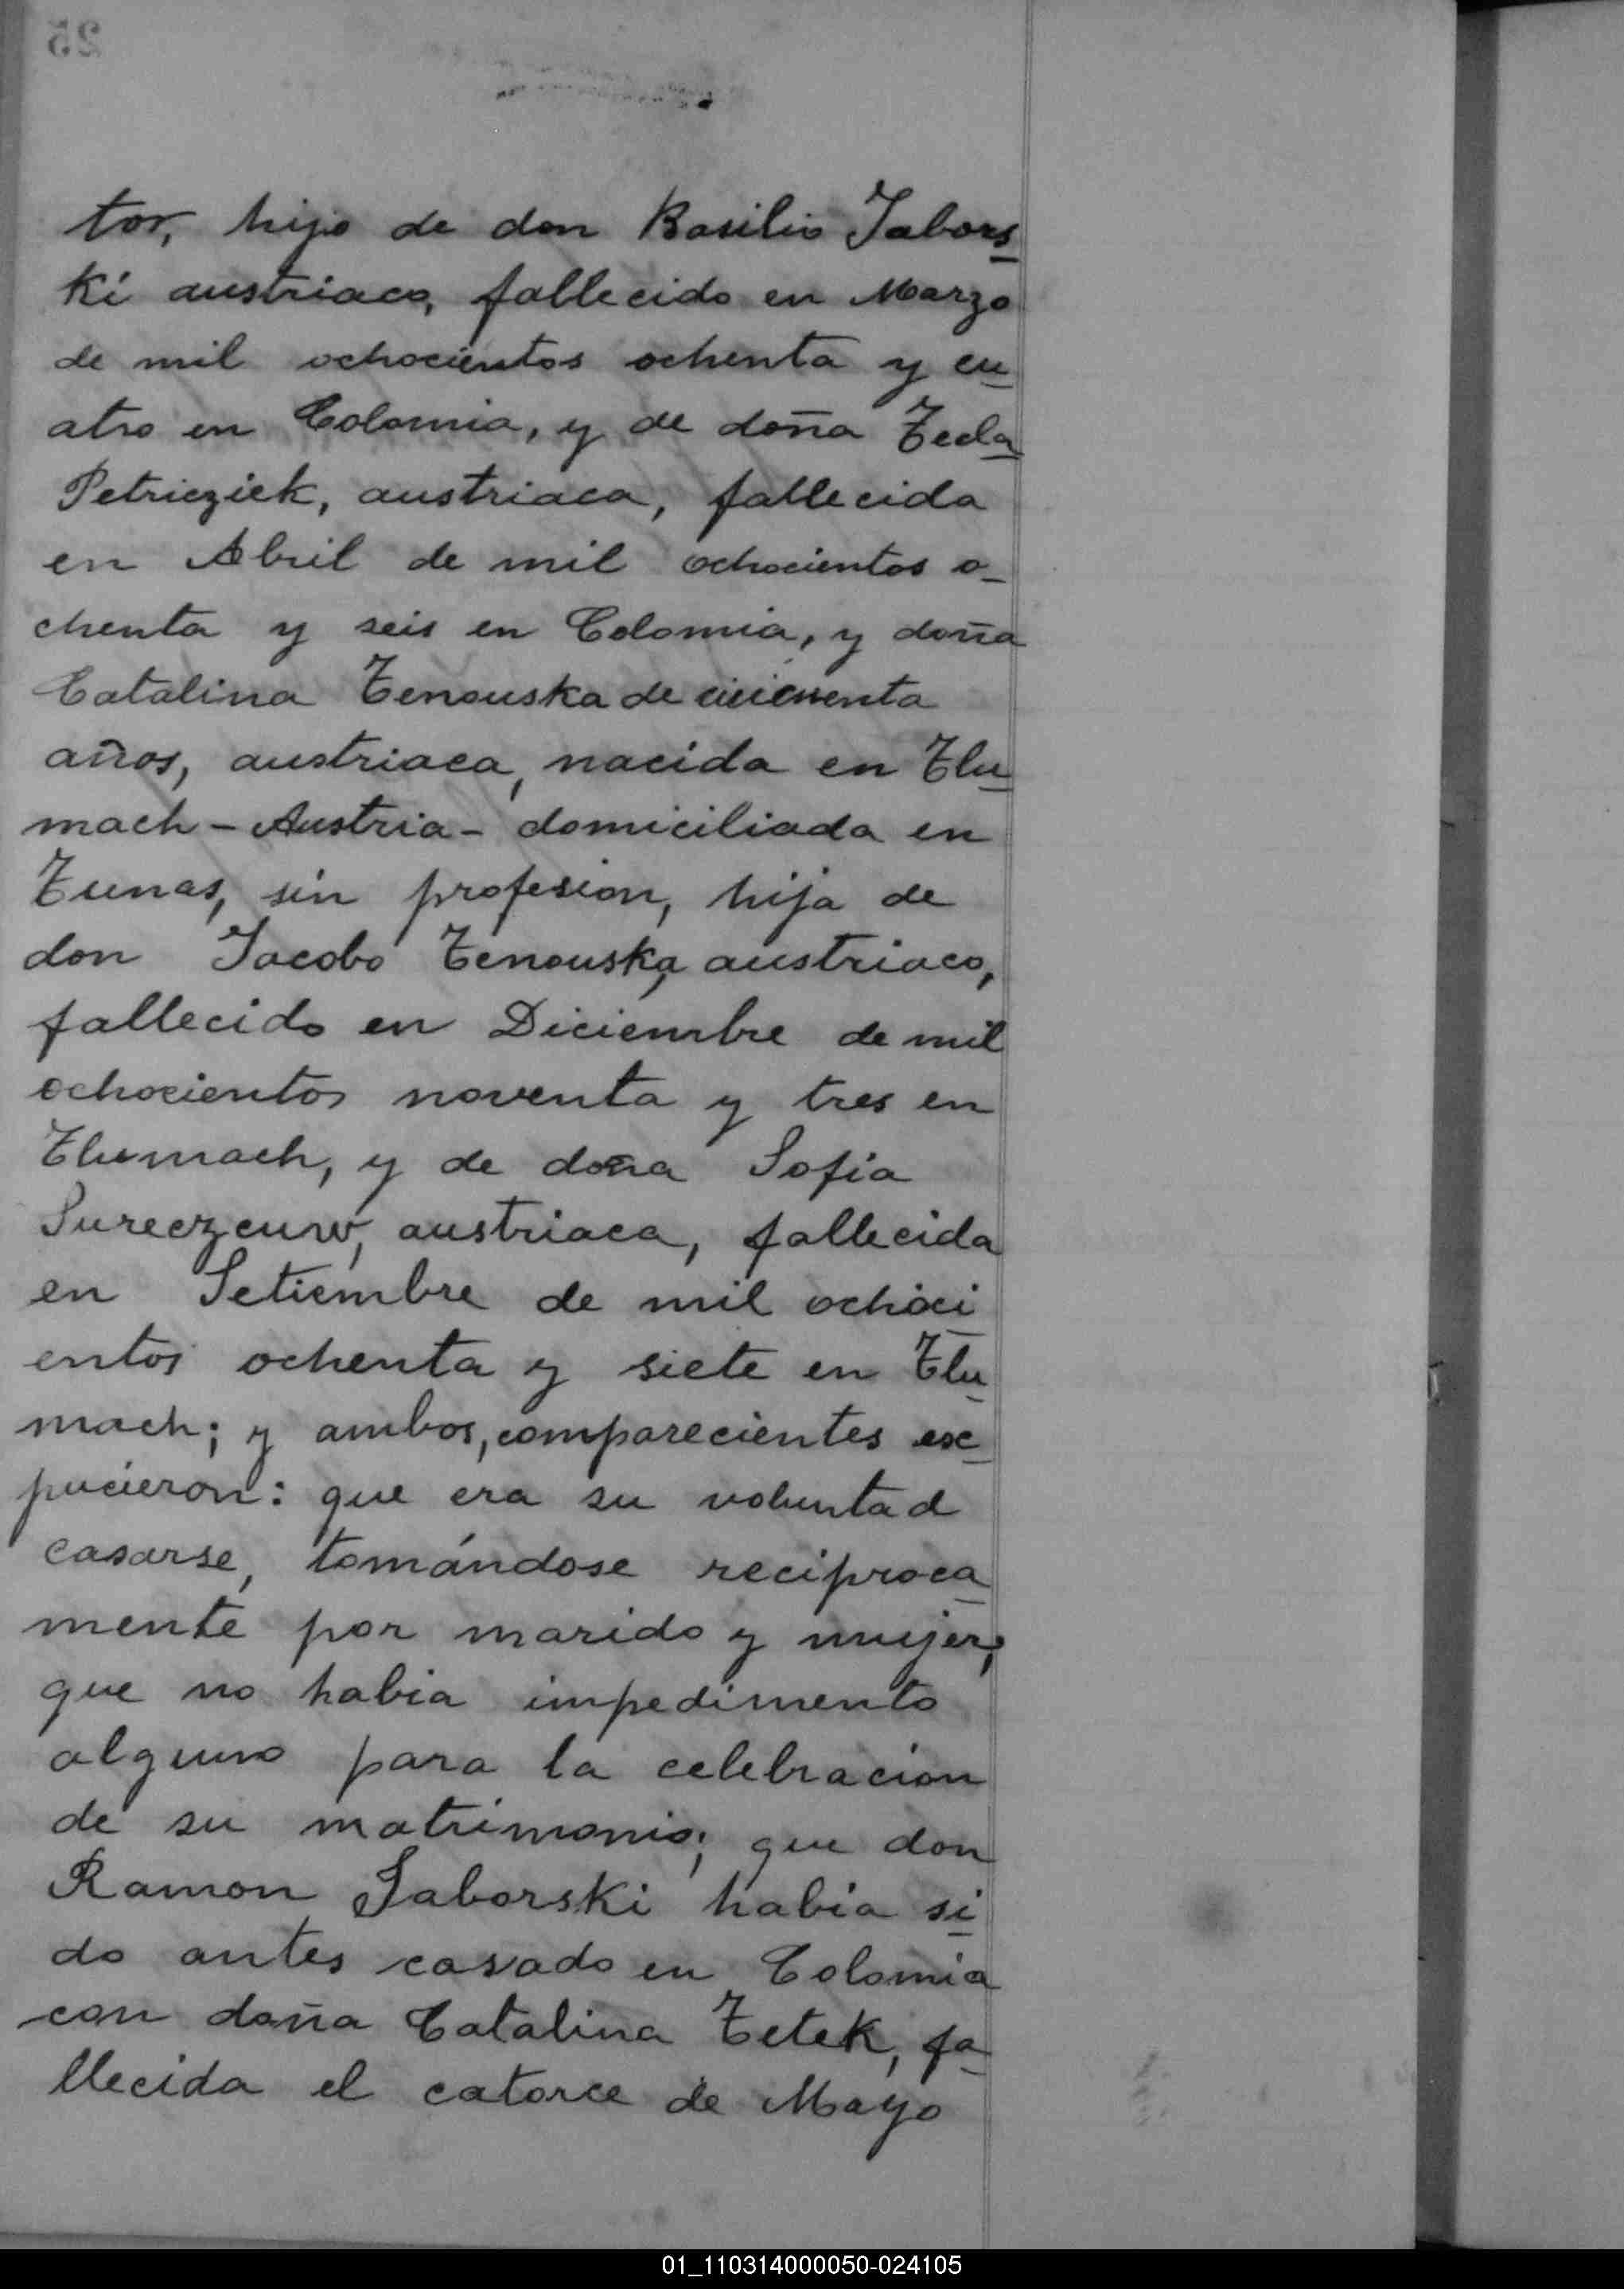 25
tor, hijo de don Basilio Jabors
ki austriaco, fallecido en Marzo
de mil ochocientos ochenta y cu
atro en Colomia, y de doña Tecla
Petricziek, austriaca, fallecida
en Abril de mil ochocientos o-
chenta y seis en Colomia, y doña
Catalina Tenouska de cincuenta
años, austriaca, nacida en Tlu
mach - Austria - domiciliada en
Tunas, sin profesion, hija de
don Jacobo Tenouska, austriaco,
fallecido en Diciembre de mil
ochocientos noventa y tres en
Tlumach, y de doña Sofia
Sureczcuw, austriaca, fallecida
en Setiembre de mil ochoci
entos ochenta y siete en Tlu
mach; y ambos, comparecientes ex
pucieron: que era su voluntad
casarse, tomándose reciproca
mente por marido y mujer,
que no habia impedimento
alguno para la celebracion
de su matrimonio; que don
Ramon Jaborski habia si
do antes casado en Colomia
con doña Catalina Tetek, fa
llecida el catorce de Mayo
01_110314000050-024105